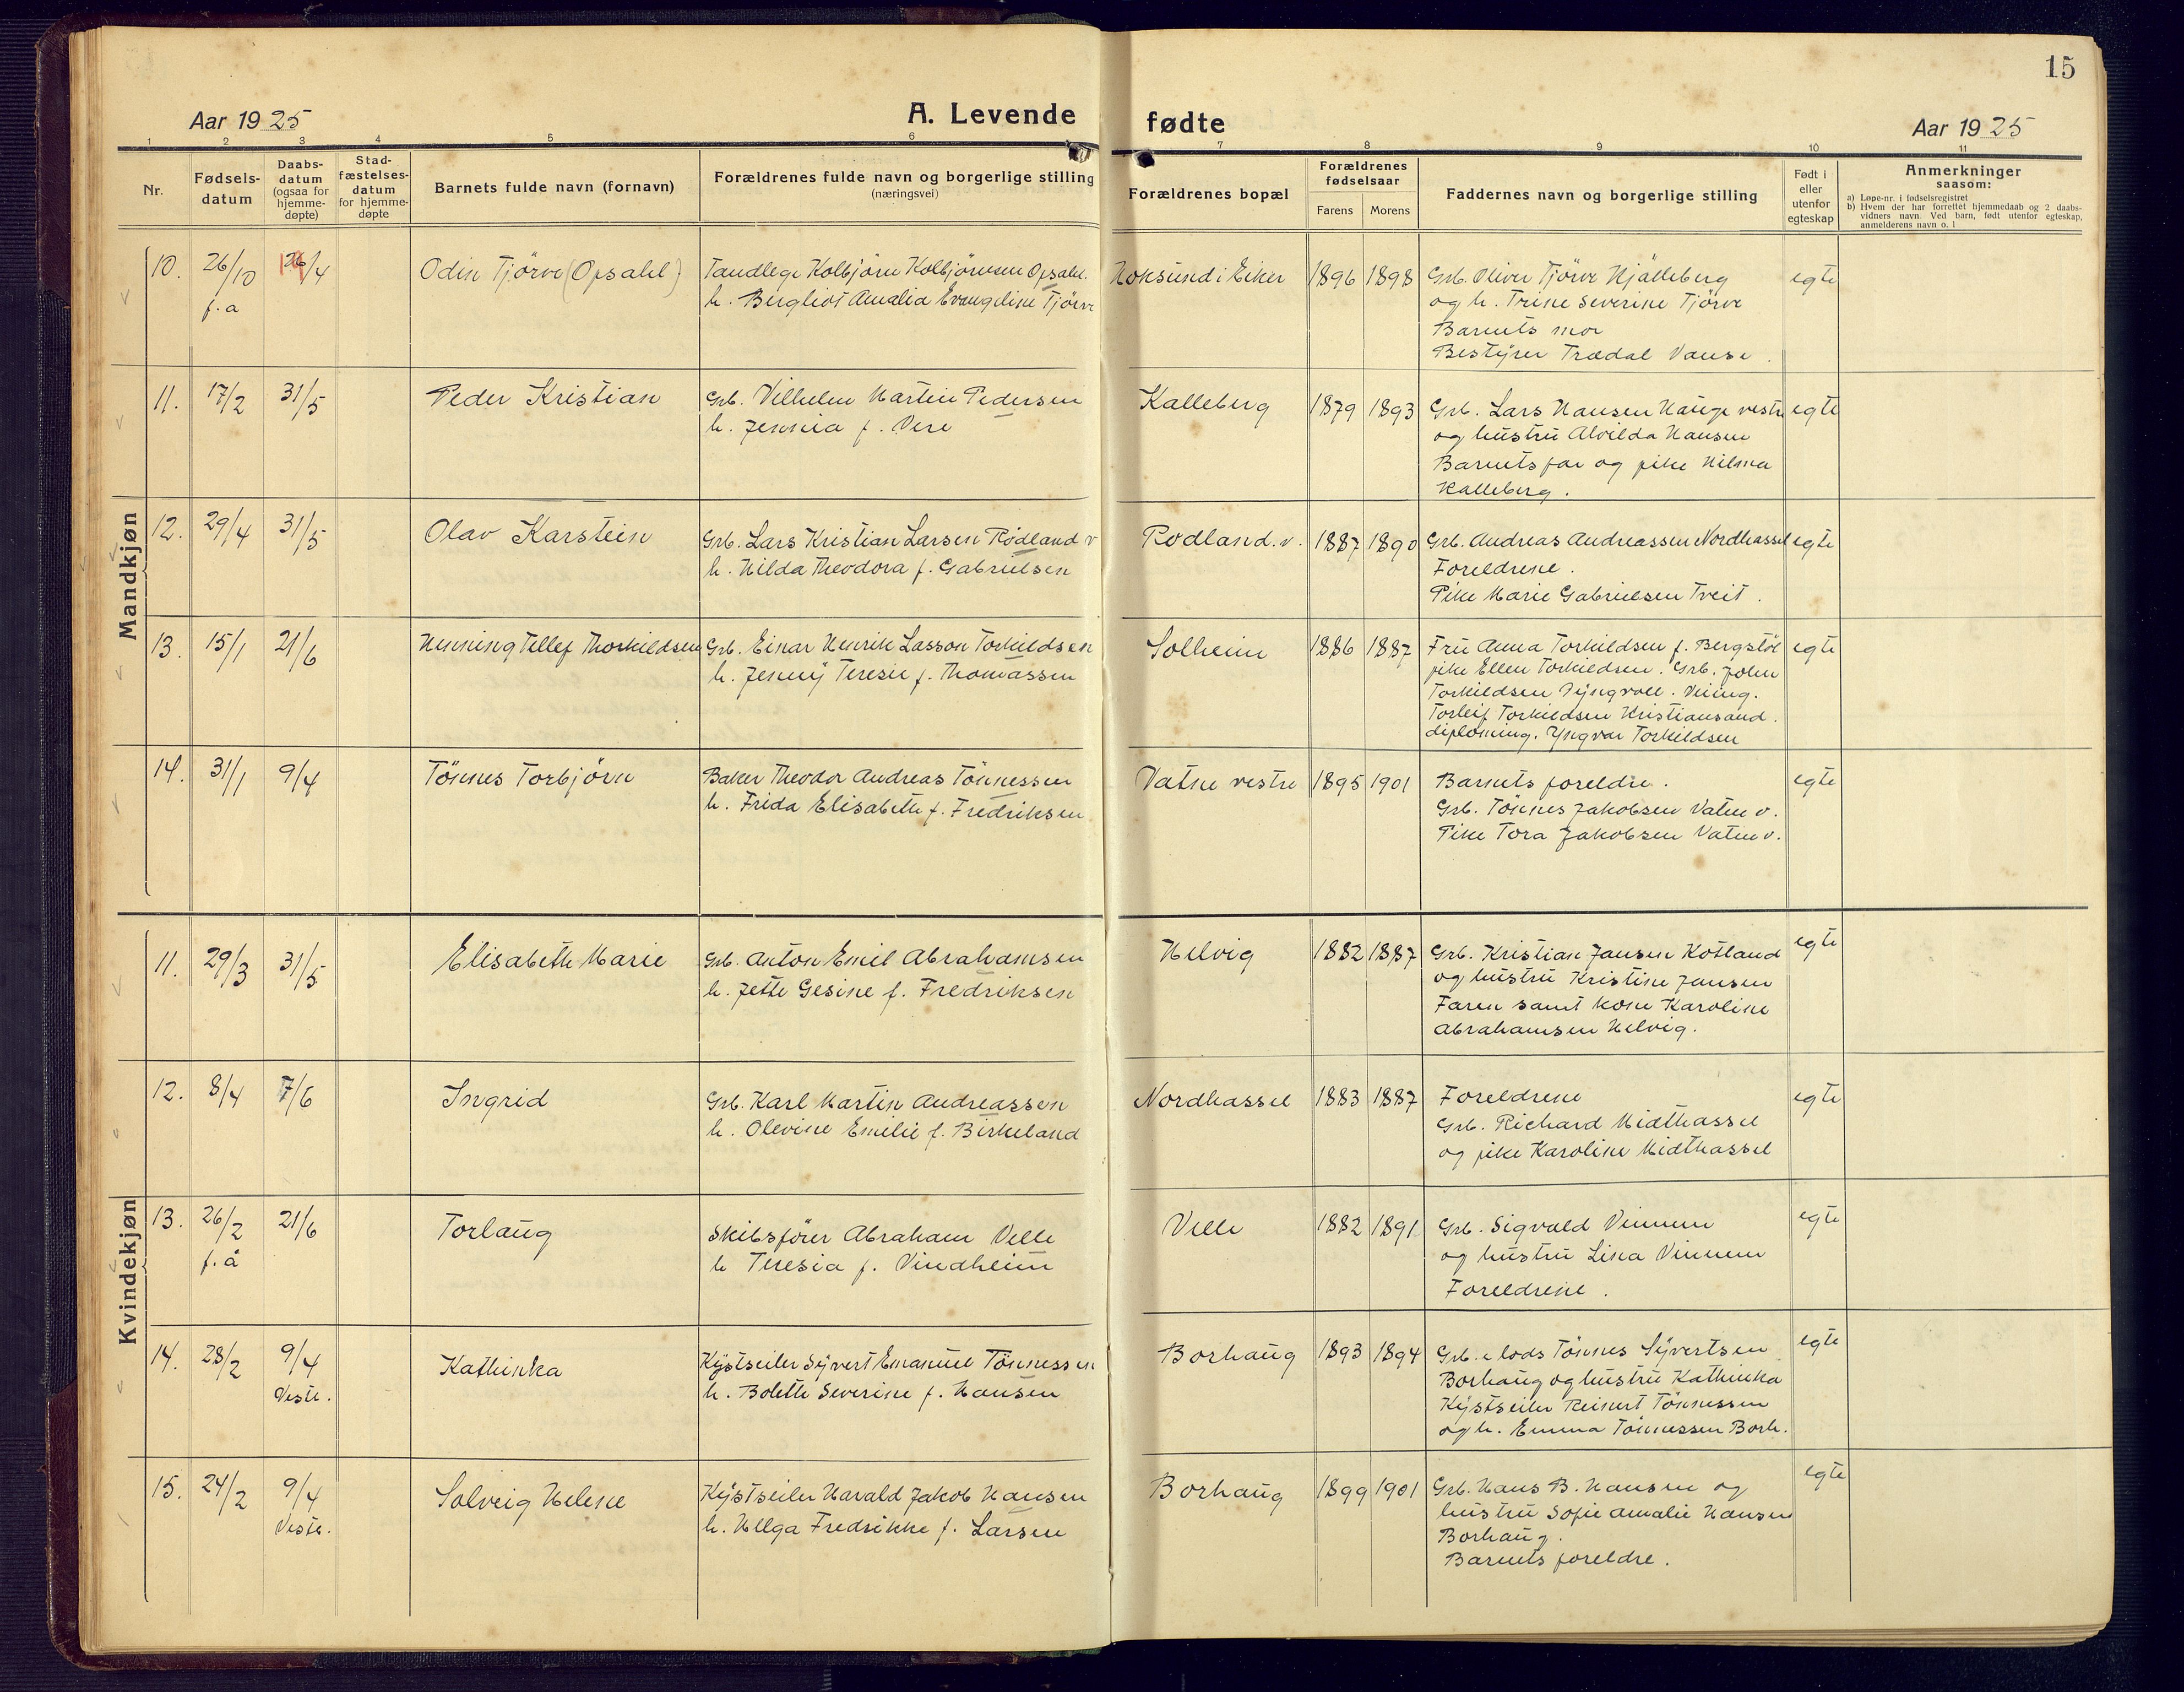 15
Aar 1925
A. Levende fødte
Aar 1925
1 2 3 4 5 6 7 8 9 10 11
Nr.
Fødsels-
datum
Daabs-
datum
(ogsaa for
hjemme-
døpte)
Stad-
fæstelses-
datum
for hjemme-
døpte
Barnets fulde navn (fornavn)
Forældrenes fulde navn og borgerlige stilling
(næringsvei)
Forældrenes bopæl
Forældrenes
fødselsaar
Farens Morens
Faddernes navn og borgerlige stilling
Født i
eller
utenfor
egteskap
Anmerkninger
saasom:
a) Løpe-nr. i fødselsregistret
b) Hvem der har forrettet hjemmedaab og 2 daabs-
vidners navn. Ved barn, født utenfor egteskap,
anmelderens navn o. l
Mandkjøn
10. 26/10 f.a /4 Odin Tjörve (Opsahl)
Tandlege Kolbjörn Kolbjörnsen Opsahl.
h. Bergliot Amalia Evangeline Tjörve
Hoksund i Eiker 1896 1898
Grb. Oliver Tjörve Hjälleberg
og h. Trine Severine Tjörve
Barnets mor
Bestyrer Trædal Vanse.
egte
11. 17/2 31/5 Peder Kristian
Grb. Vilhelm Martin Pedersen
h. Jennia f. Vere
Kalleberg 1879 1893
Grb. Lars Hansen Hauge vestre
og hustru Alvilda Hansen
Barnets far og pike Hilma
Kalleberg.
egte
12. 29/4 31/5 Olav Karstein
Grb. Lars Kristian Larsen Rødland v
h. Hilda Theodora f. Gabrielsen
Rødland. v. 1887 1890
Grb. Andreas Andreassen Nordhassel
Foreldrene.
Pike Marie Gabrielsen Tveit.
egte
13. 15/1 21/6 Henning Tellef Thorkildsen
Grb. Einar Henrik Lasson Torkildsen
h. Jenny Teresie f. Thomassen
Solheim 1886 1887
Fru Anna Torkildsen f. Bergstöl
pike Ellen Torkildsen. Grb. John
Torkildsen
Torleif Torkildsen Kristiansand.
diploming. Yngvar Torkildsen
egte
14. 31/1 9/4 Tönnes Torbjörn
Baker Theodor Andreas Tönnessen
h. Frida Elisabeth f. Fredriksen
Vatne vestre 1895 1901
Barnets foreldre.
Grb. Tönnes Jakobsen Vatne v.
Pike Tora Jakobsen Vatne v.
egte
Kvindekjøn
11. 29/3 31/5 Elisabeth Marie
Grb. Anton Emil Abrahamsen
h. Jette Gesine f. Fredriksen
Helvig 1882 1887
Grb. Kristian Jansen Kotland
og hustru Kristine Jansen
Faren samt kone Karoline
Abrahamsen Helvig.
egte
12. 8/4 7/6 Ingrid
Grb. Karl Martin Andreassen
h. Olevine Emilie f. Birkeland
Nordhassel 1883 1887
Foreldrene
Grb. Richard Midthassel
og pike Karoline Midthassel
egte
13. 26/2 f.å 21/6 Torlaug
Skibsfører Abraham Velle
h Teresia f. Vindheim
Velle 1882 1891
Grb. Sigvald Vinnem
og hustru Lina Vinnem
Foreldrene.
egte
14. 28/2 9/4 Veste. Kathinka
Kystseiler Syvert Emanuel Tönnessen
h. Bolette Severine f. Hansen
Borhaug 1893 1894
Grb. & lods Tönnes Syvertsen
Borhaug og hustru Kathinka
Kystseiler Reinert Tönnessen
og h. Emma Tönnessen Borh.
egte
15. 24/2 9/4 Veste. Solveig Helene
Kystseiler Harald Jakob Hansen
h. Helga Fredrikke f. Larsen
Borhaug 1899 1901
Grb. Hans B. Hansen og
hustru Sofie Amalie Hansen
Borhaug.
Barnets foreldre.
egte